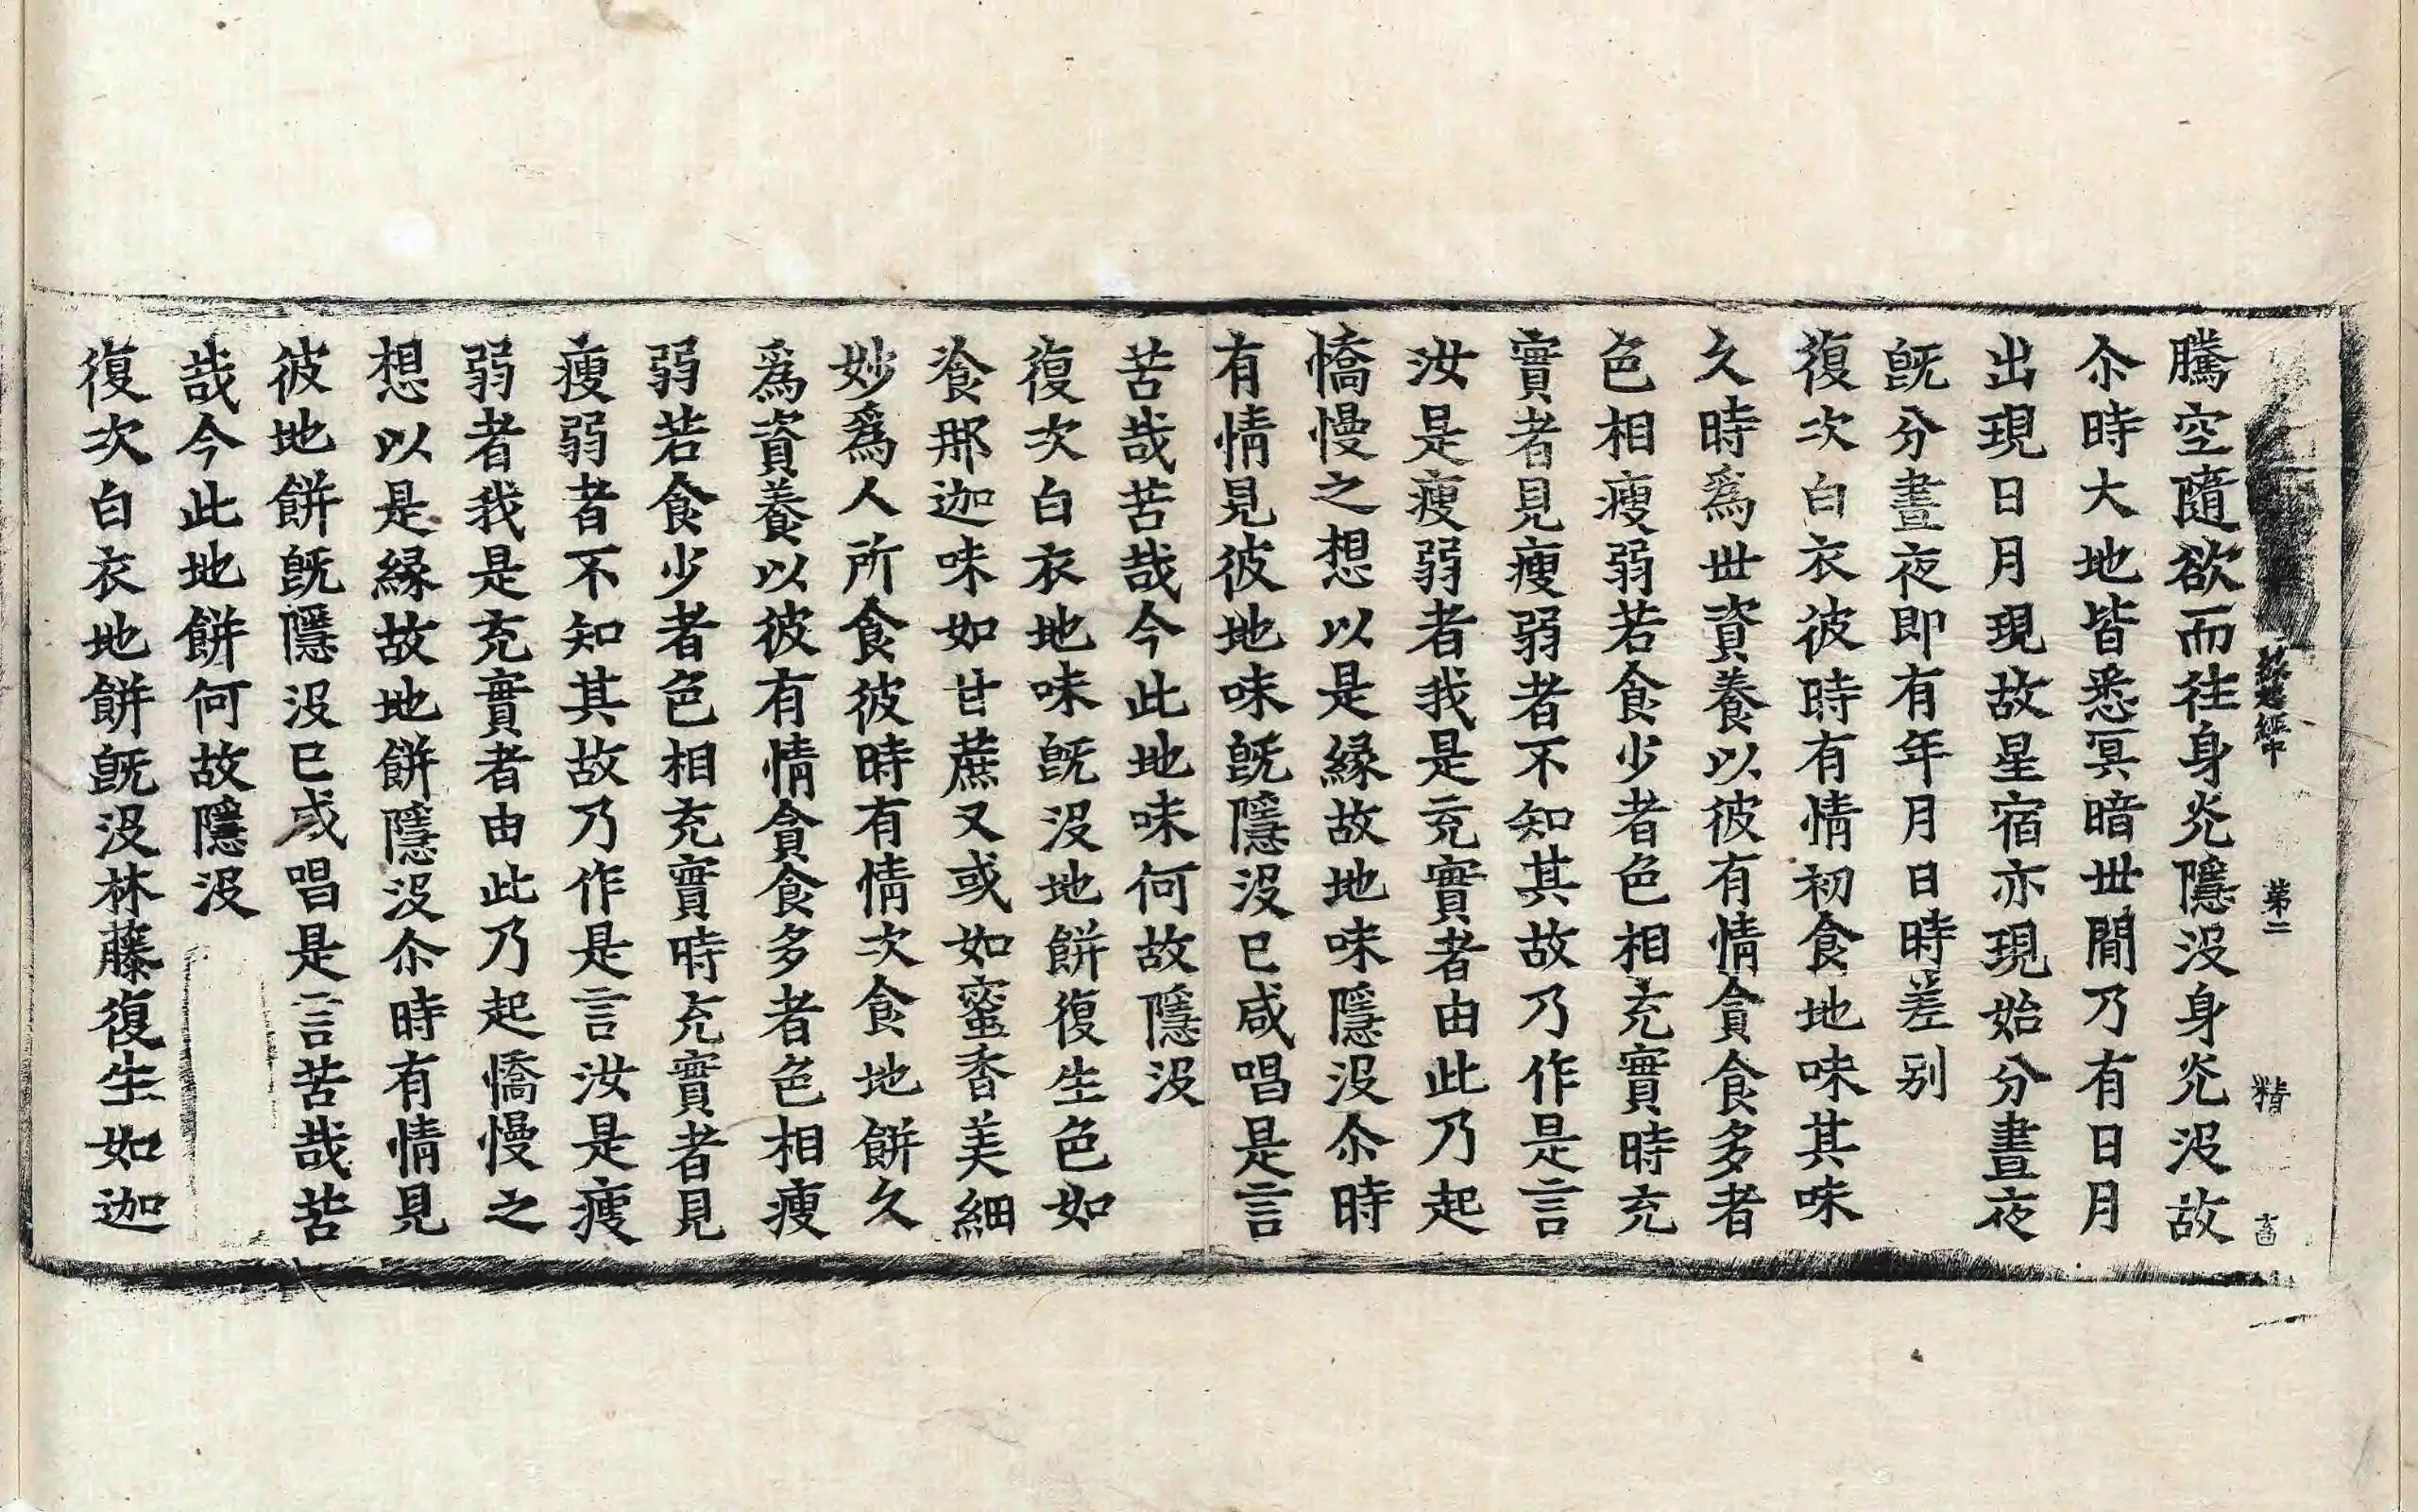 經中 第二 精
騰空隨欲而往身光隱没身光没故
尒時大地皆悉冥暗丗閒乃有日月
出現日月現故星宿亦現始分晝夜
旣分晝夜即有年月日時差别
復次白衣彼時有情初食地味其味
久時爲丗資養以彼有情貪食多者
色相瘦弱若食少者色相充實時充
實者見瘦弱者不知其故乃作是言
汝是瘦弱者我是充實者由此乃起
憍慢之想以是縁故地味隱没尒時
有情見彼地味旣隱没已咸唱是言
苦哉苦哉今此地味何故隱没
復次白衣地味旣没地餅復生色如
飡那迦味如甘蔗又或如蜜香美細
妙爲人所食彼時有情次食地餅久
爲資養以彼有情貪食多者色相瘦
弱若食少者色相充實時充實者見
瘦弱者不知其故乃作是言汝是瘦
弱者我是充實者由此乃起憍慢之
想以是縁故地餅隱没尒時有情見
彼地餅旣隱没已咸唱是言苦哉苦
哉今此地餅何故隱没
復次白衣地餅旣没林藤復生如迦